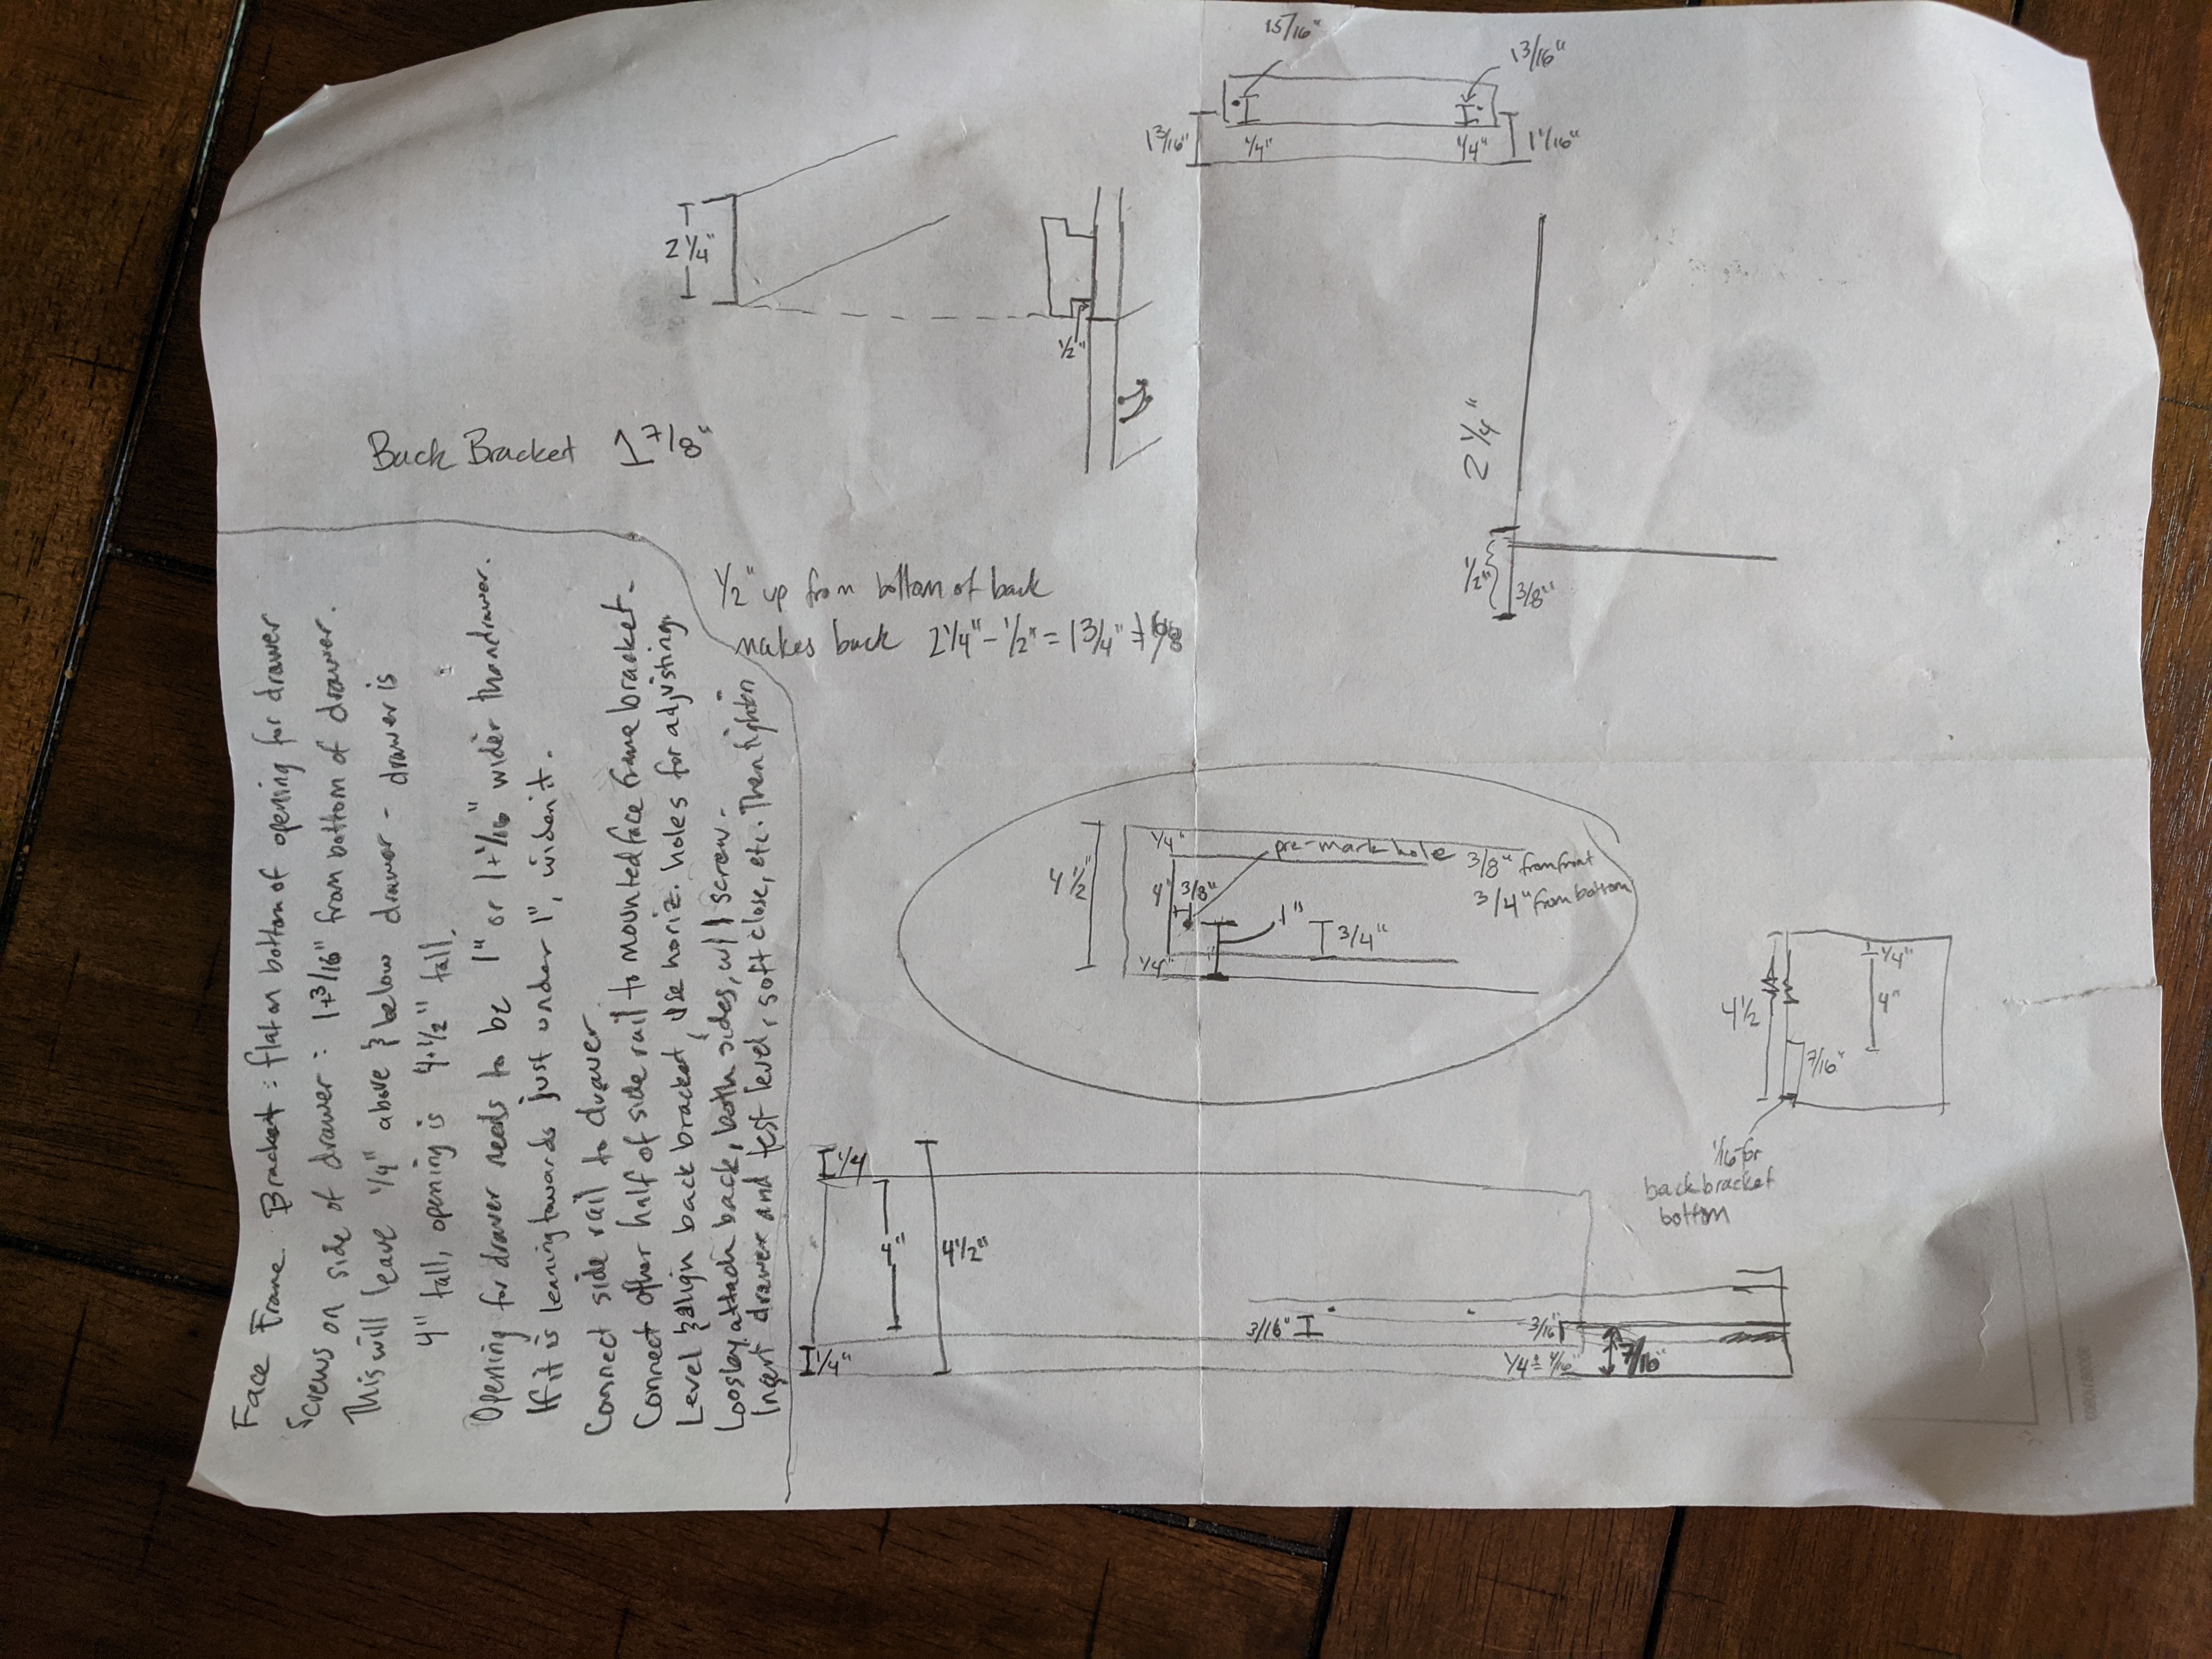 Face Frame Bracket: flat on bottom of opening for drawer
Screws on side of drawer: 1+3/16" from bottom of drawer.
This will leave 1/4" above & below drawer - drawer is
4" tall, opening is 4+1/2" tall.
Opening for drawer needs to be 1" or 1+1/16" wider than drawer.
If it is leaning towards just under 1", widen it.
Connect side rail to drawer
Connect other half of side rail to mounted face frame bracket.
Level & align back bracket use horiz. holes for adjusting.
Loosley attach back, both sides, w/ 1 screw.
Insert drawer and test level, soft close, etc. Then tighten
Back Bracket 1 7/8"
1/2" up from bottom of back
makes back 2 1/4" - 1/2" = 1 3/4"
2 1/4"
1/2"
15/16"
13/16"
1 3/16"
1/4"
1/4"
1 1/16"
2 1/4"
1/2"
3/8"
4 1/2"
1/4"
pre-mark hole
3/8" from front
3/4" from bottom
4"
3/8"
1"
3/4"
1/4"
4 1/2
1/4"
4"
7/16"
1/16 for
back bracket
bottom
1/4
4"
4 1/2"
1/4"
3/16"
3/16
1/4 = 4/16"
7/16"